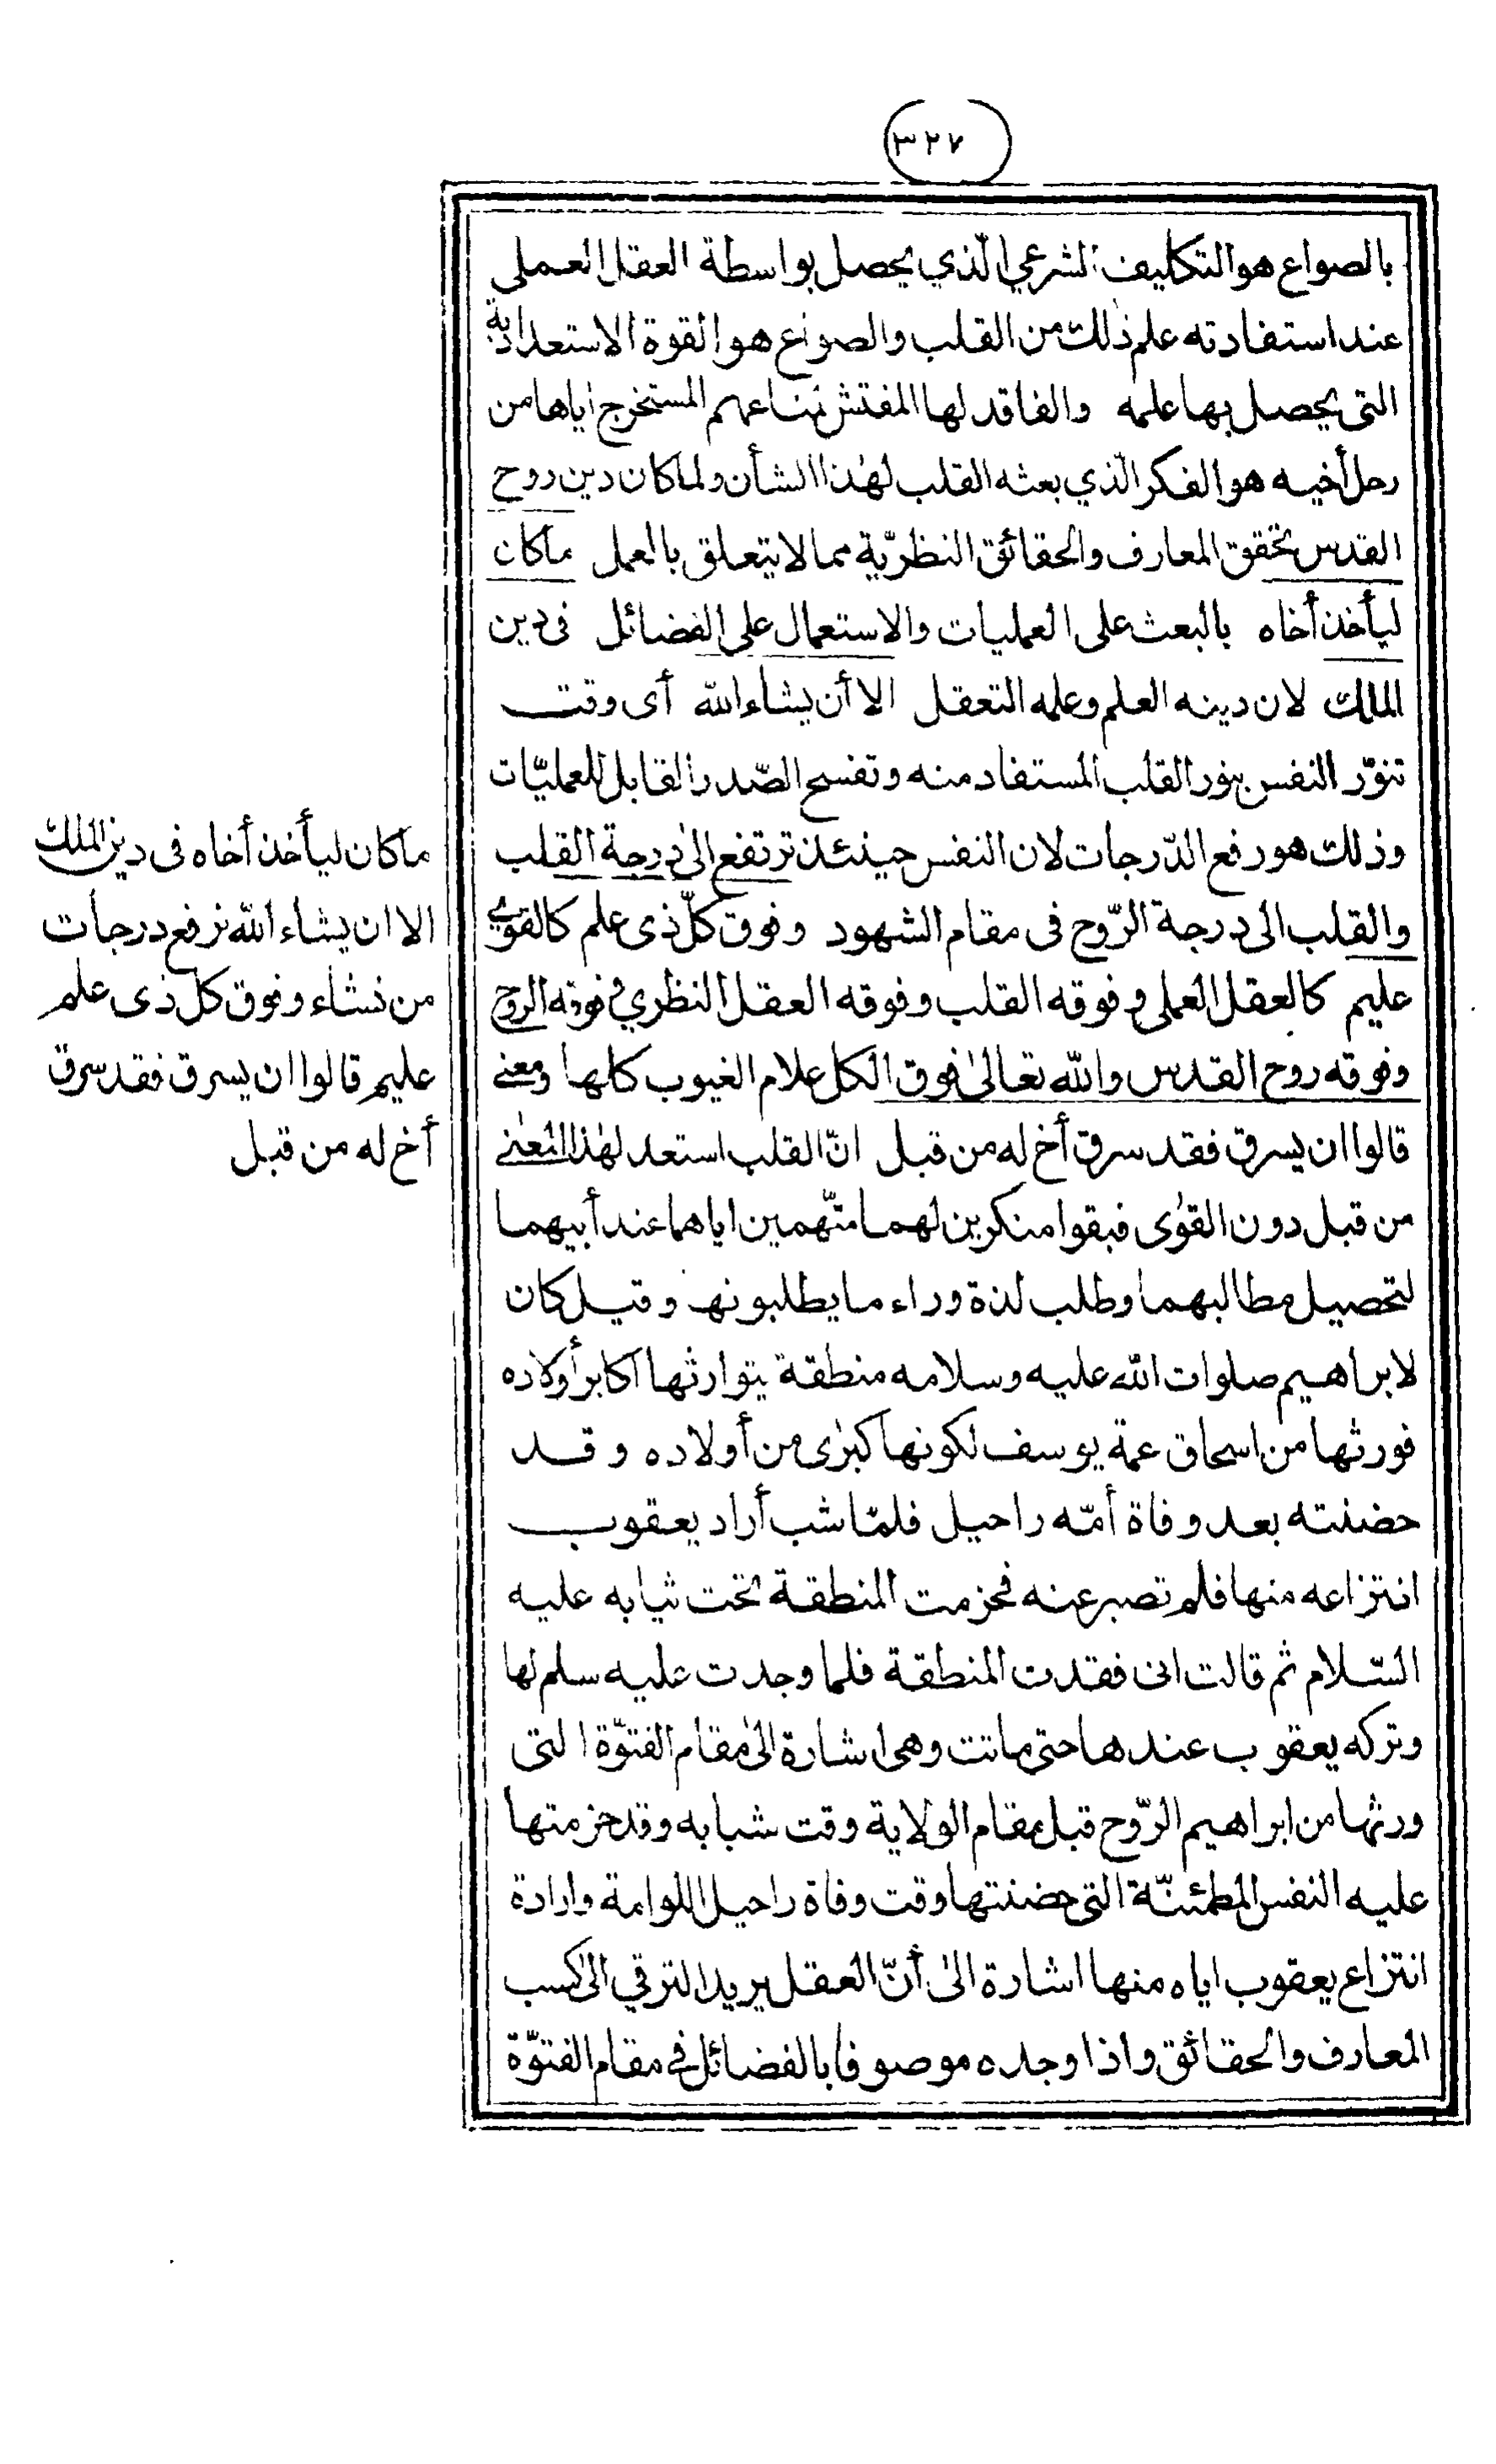 ٣٢٧
بالصواع هو التكليف الشرعي الّذي يحصل بواسطة العقل العملي
عند استفادته علم ذلك من القلب والصواع هو القوة الاستعدادية
التى يحصل بها علمه والفاقد لها المفتش لمتاعهم المستخرج اياها من
رحل أخيه هو الفكر الّذي بعثه القلب لهٰذا الشأن ولما كان دين روح
القدس تحقق المعارف والحقائق النظريّة مما لا يتعلق بالعمل ماكان
ليأخذ أخاه بالبعث على العمليات والاستعمال على الفضائل فى دين
الملك لان دينه العلم وعلمه التعقل الا أن يشاء الله أى وقت
تنوّر النفس بنور القلب المستفاد منه وتفسح الصّدر القابل للعمليّات
وذلك هو رفع الدّرجات لان النفس حينئذ ترتفع الىٰ درجة القلب
والقلب الى درجة الرّوح فى مقام الشهود وفوق كلّ ذى علم كالقوي
عليم كالعقل العملي وفوقه القلب وفوقه العقل النظري وفوقه الروح
وفوقه روح القدس والله تعالىٰ فوق الكل علام الغيوب كلها ومعنى
قالوا ان يسرق فقد سرق أخ له من قبل انّ القلب استعد لهٰذا المعنى
من قبل دون القوٰى فبقوا منكرين لهما متّهمين اياهما عند أبيهما
لتحصيل مطالبهما وطلب لذة وراء ما يطلبونها وقيل كان
لابراهيم صلوات الله عليه وسلامه منطقة يتوارثها اكابر أولاده
فورثها من اسحاق عمة يوسف لكونها كبرٰى من أولاده وقد
حضنته بعد وفاة أمّه راحيل فلمّا شب أراد يعقوب
انتزاعه منها فلم تصبر عنه فحزمت المنطقة تحت ثيابه عليه
السّلام ثم قالت انى فقدت المنطقة فلما وجدت عليه سلم لها
وتركه يعقوب عندها حتى ماتت وهى اشارة الىٰ مقام الفتوّة التى
ورثها من ابراهيم الرّوح قبل مقام الولاية وقت شبابه وقد حزمتها
عليه النفس المطمئنّة التى حضنتها وقت وفاة راحيل اللوامة وارادة
انتزاع يعقوب اياه منها اشارة الىٰ أنّ العقل يريد الترقي الىٰ كسب
المعارف والحقائق واذا وجده موصوفا بالفضائل في مقام الفتوّة
ماكان ليأخذ أخاه فى دين الملك
الا ان يشاء الله نرفع درجات
من نشاء وفوق كل ذى علم
عليم قالوا ان يسرق فقد سرق
أخ له من قبل